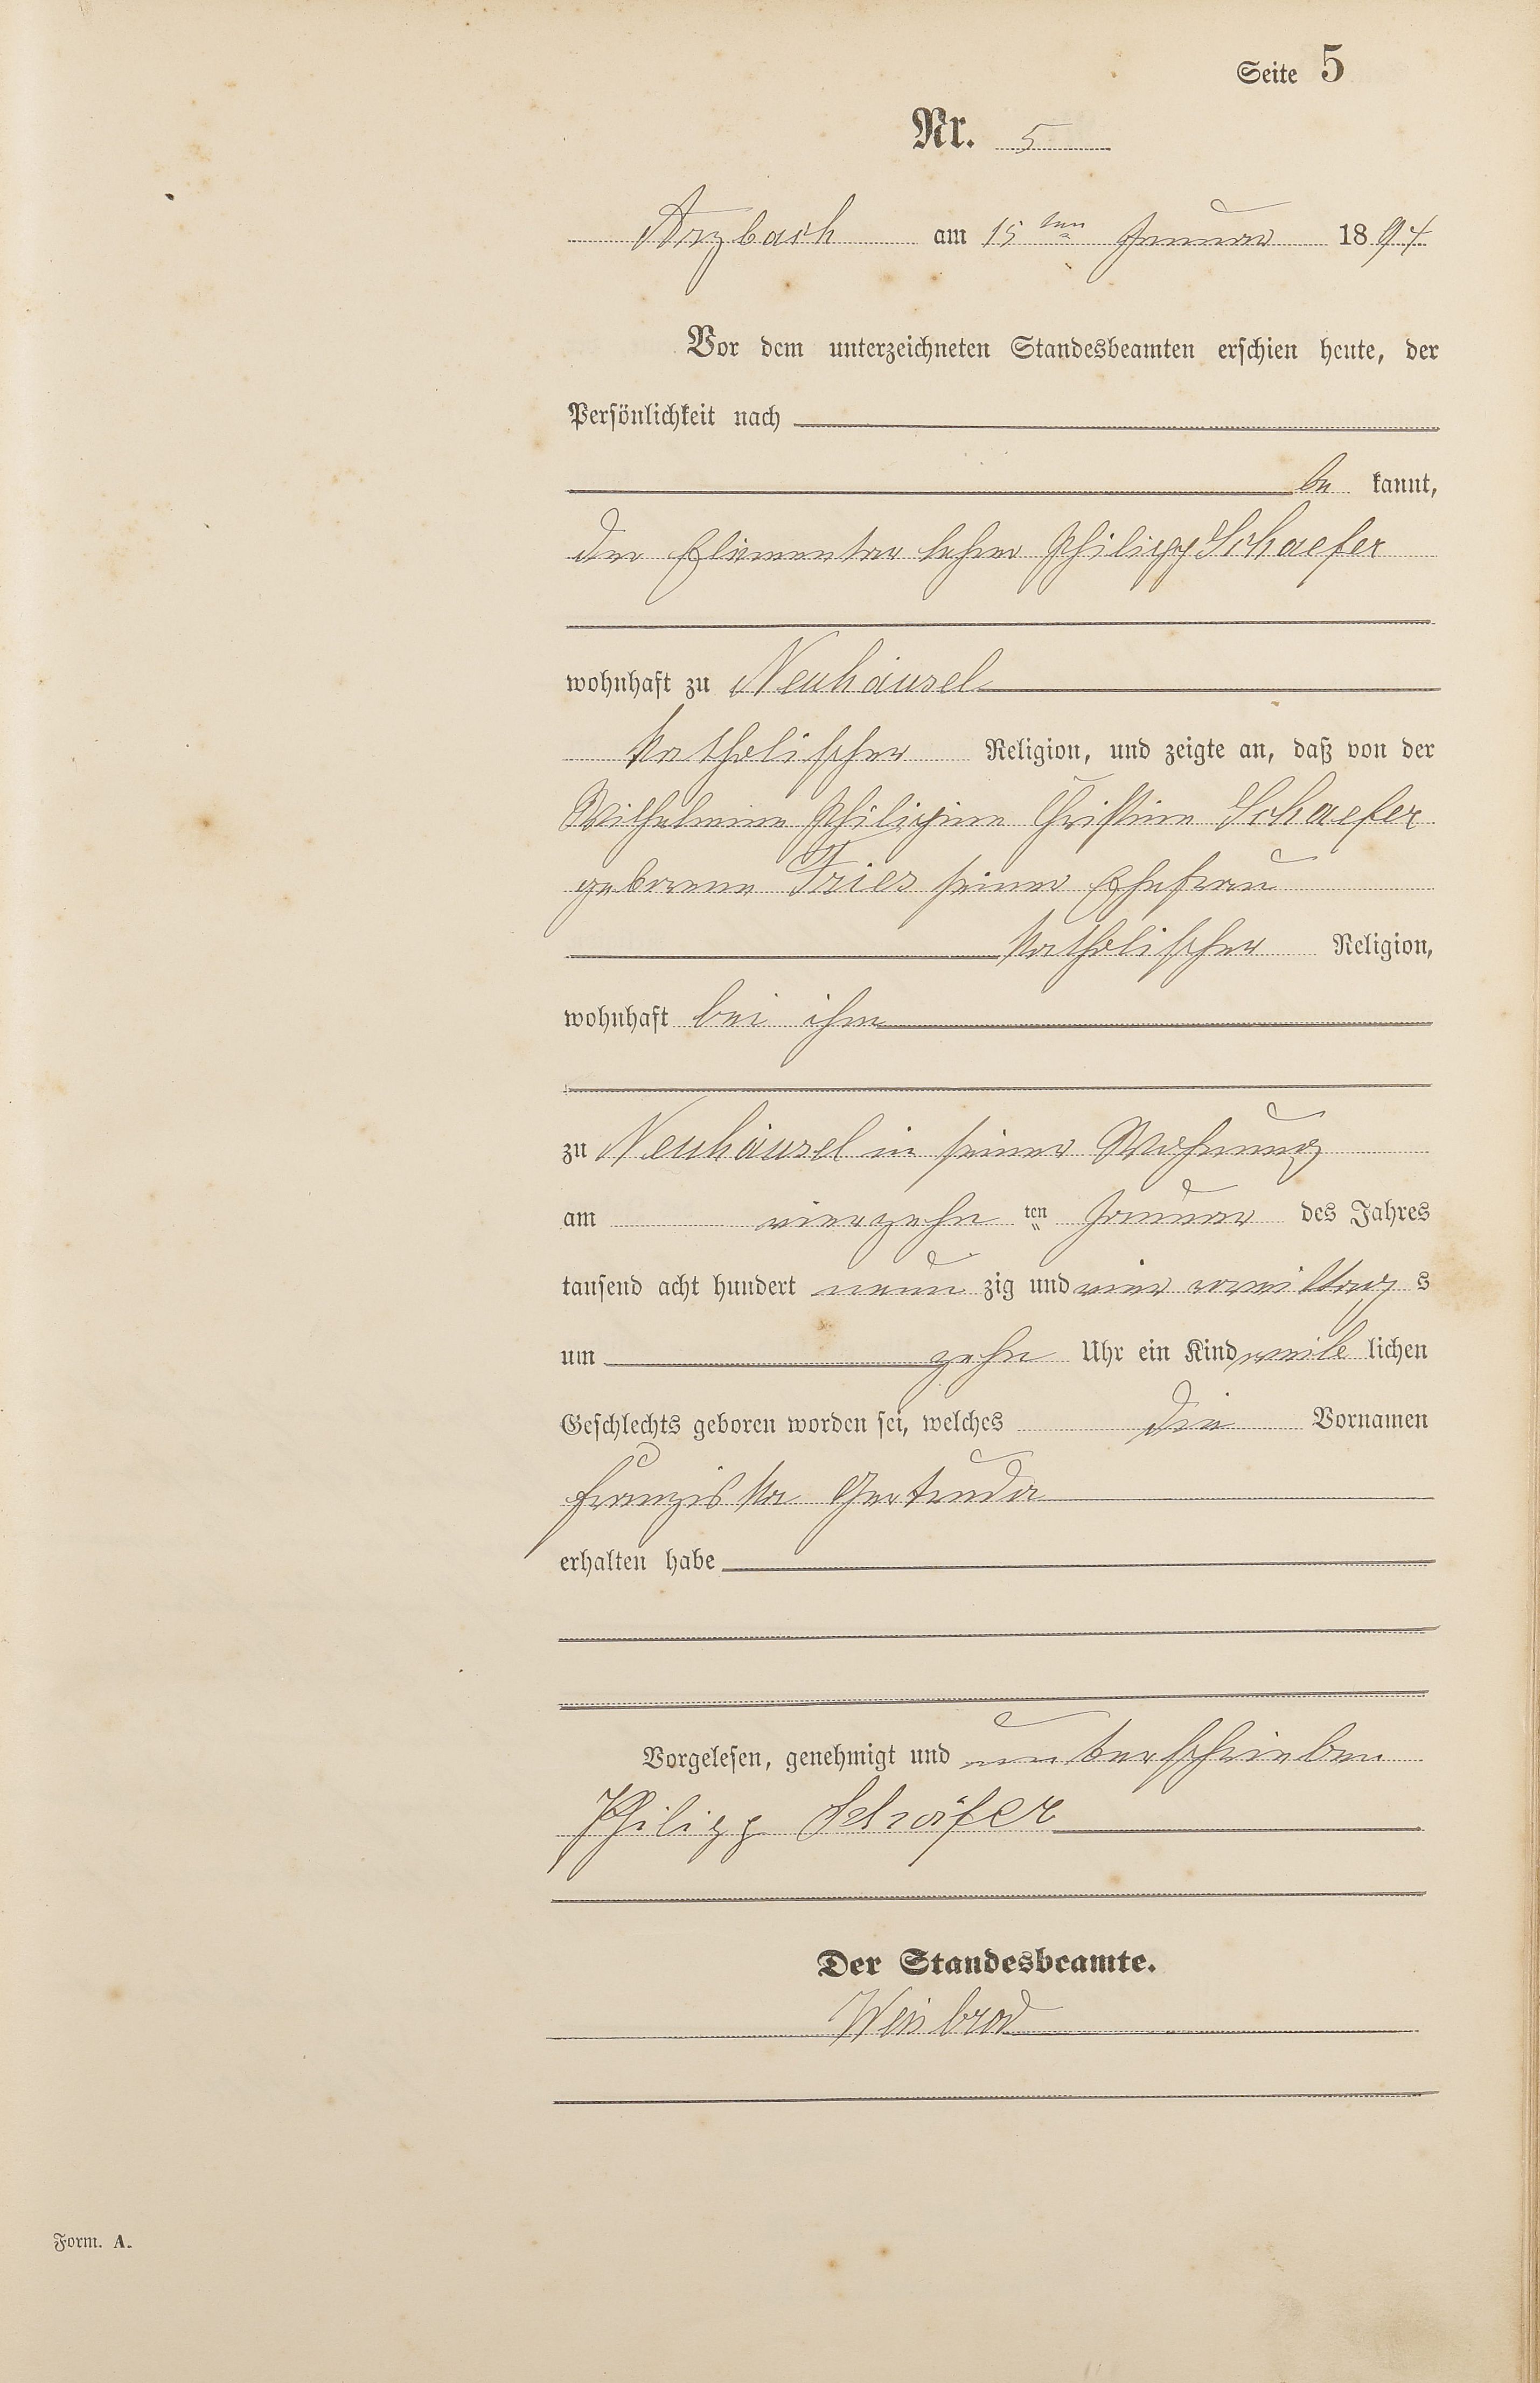 Seite 5
Nr. 5
Arzbach am 15ten Januar 1894
Vor dem unterzeichneten Standesbeamten erschien heute, der
Persönlichkeit nach
be kannt,
der Elementarlehrer Philipp Schaefer
wohnhaft zu Neuhäusel
katholischer Religion, und zeigte an, daß von der
Wilhelmine Philippine Christine Schaefer
geborene Fries seiner Ehefrau
katholischer Religion,
wohnhaft bei ihm
zu Neuhäusel in seiner Wohnung
am vierzehn ten Januar des Jahres
tausend acht hundert neun zig und vier vormittag s
um zehn Uhr ein Kind weib lichen
Geschlechts geboren worden sei, welches die Vornamen
Franziska Gertruda
erhalten habe
Vorgelesen, genehmigt und unterschrieben
Philipp Schäfer
Der Standesbeamte.
Weisbrod
Form. A.